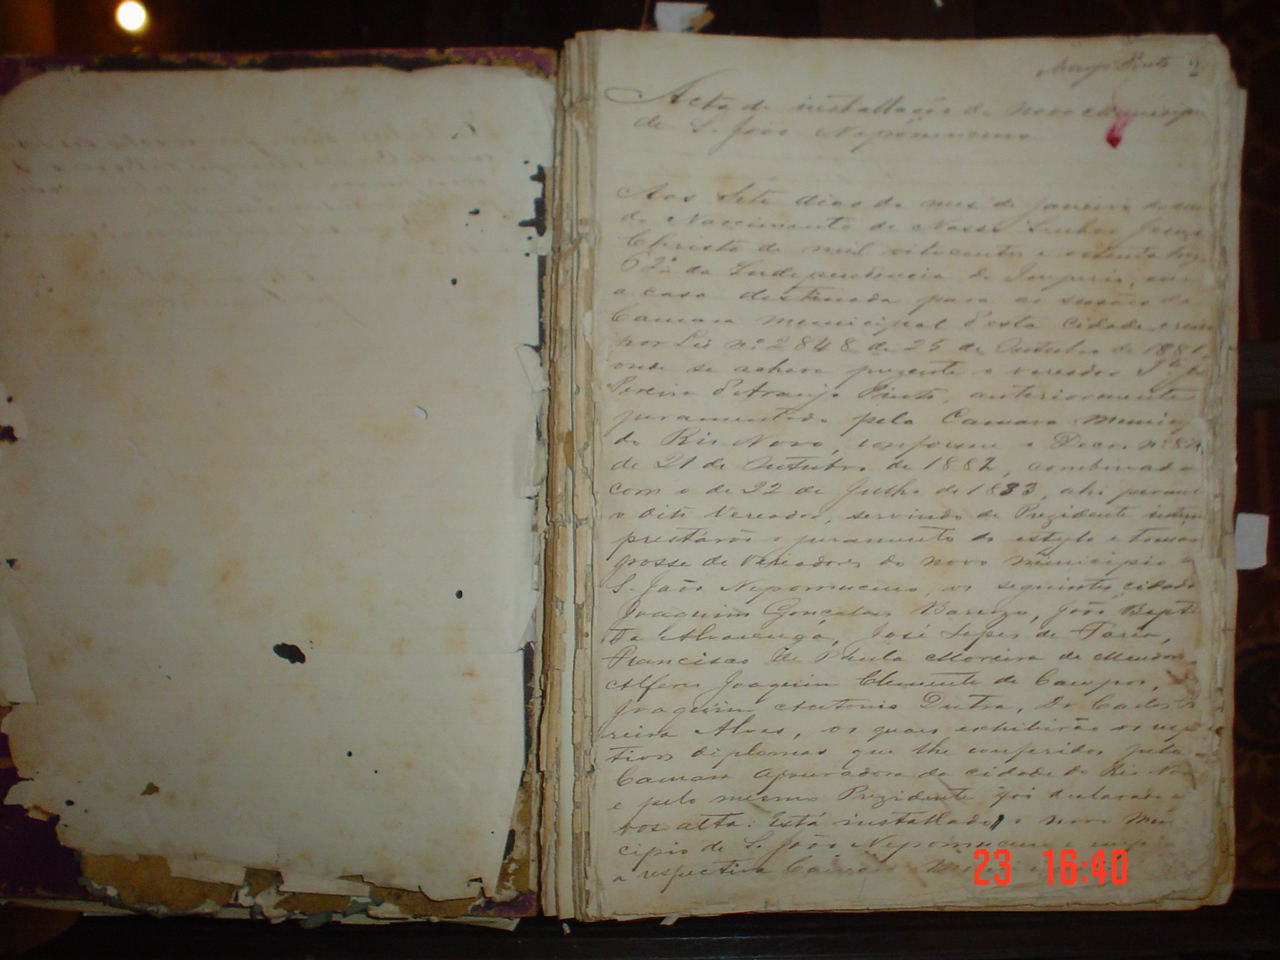 Araujo Pinto 2
Acta de installação do novo municip
de S. João Nepomuceno
Aos sete dias do mes de Janeiro do
do Nascimento de Nosso Senhor Jesus
Christo de mil oitocentos e oitenta tres
62º da Independencia do Imperio, em
a casa destinada para as sessões da
Camara Municipal d'esta Cidade,
por Lei nº 2848 de 25 de Outubro de 1881,
onde se achava prezente o vereador
Pereira d'Araujo Pinto, anteriormente
juramentado pela Camara Munici
do Rio Novo, conforme o Decre. nº
de 21 de Outubro de 1882, combinado
com o de 22 de Julho de 1833, ahi
o dito Vereador, servindo de Prezidente
prestárão o juramento do estylo e
posse de Vereadores do novo municipio
S. João Nepomuceno, os seguintes cidadã
Joaquim Gonçalves João Bapt
ta Alvarenga, José Lopes de Faria,
Francisco de Paula Moreira de Mendon
Alferes Joaquim Clemente de Campos,
Joaquim Antonio Dutra, Dr. Carlos
reira Alves, os quaes exhibirão os resp
tivos diplomas que lhe conferidos pela
Camara Apuradora da cidade do Rio No
e pelo mesmo Prezidente foi declarado
vos alta: Está installado o novo Mu
cipio de S. João Nepomuceno
a respectiva Camara
23 16:40